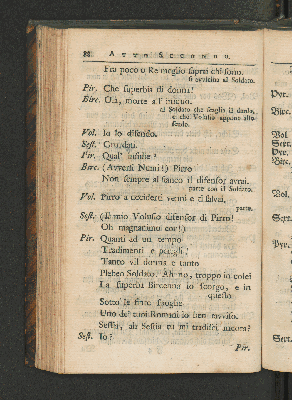 88 ATTO SECONDO.
Fra poco o Re meglio saprai chi sono.
si avvicina al Soldato.
Pir. Che superbia di donna!
Birc. Olà, morte a l'iniquo.
al Soldato che scaglia il dardo,
e che Volusio appena alto
Vol. Io lo difendo.
Sest. Guardati.
Pir. Qual' insidie?
Birc. (Avversi Numi!) Pirro
Non sempre al fianco il difensor avrai.
parte con il Soldato.
Vol. Pirro a ucciderti venni e ti salvai.
parte.
Sest. (Il mio Volusio difensor di Pirro!
Oh magnanimo cor!)
Pir. Quanti ad un tempo
Tradimenti e perigli!
Tanto vil donna e tanto
Plebeo Soldato. Ah no, troppo in colei
La superba Bircenna io scorgo, e in
questo
Sotto le finte spoglie
Uno de' tuoi Romani io ben ravviso.
Sestia, ah Sestia tu mi tradisci ancora?
Sest. Io?
Pir.
Per.
Birc.
Vol.
Sest.
Pir.
Birc.
Vol.
Sest.
Pir.
Sest.